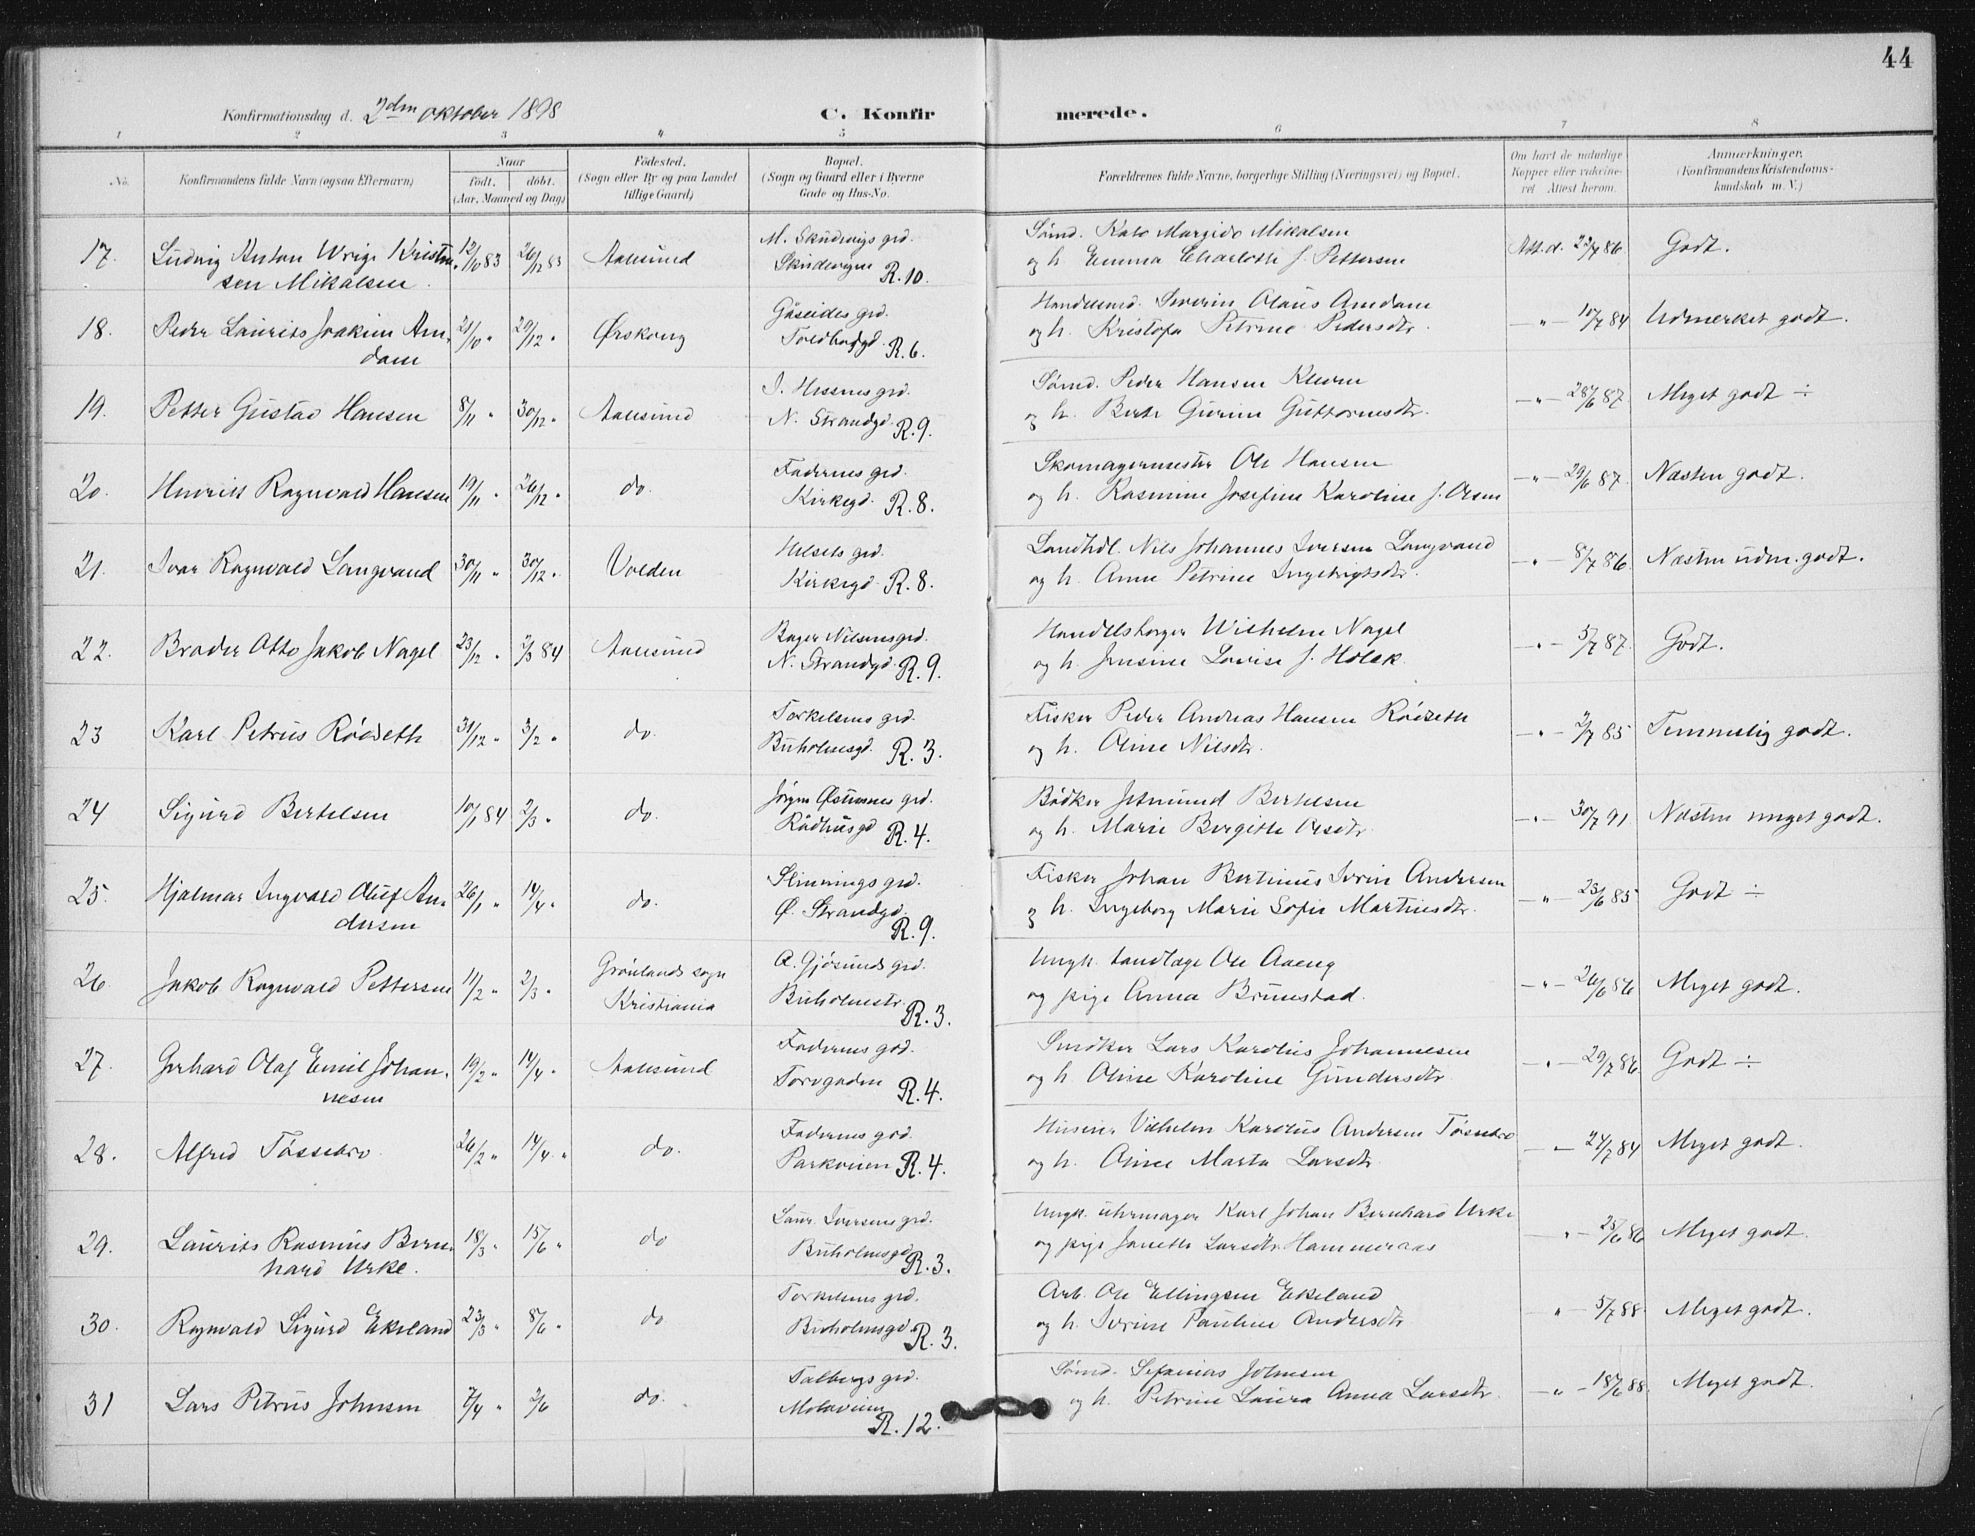 44
Konfirmationsdag d. 2den oktober 1898
C. Konfirmerede.
1 2 3 4 5 6 7 8
No.
Konfirmandens fulde Navn (ogsaa Efternavn)
Naar
født. døbt.
(Aar, Maaned og Dag)
Fødested.
(Sogn eller By og paa Landet
tillige Gaard)
Bopæl.
(Sogn og Gaard eller i Byerne
Gade og Hus-No.
Forældrenes fulde Navne, borgerlige Stilling (Næringsvei) og Bopæl.
Om havt de naturlige
Kopper eller vakcine-
ret Attest herom.
Anmærkninger.
(Konfirmandens Kristendoms-
kundskab m. V.)
17. Ludvig Anton Kristen 12/10 83 26/12 83 Aalesund M. Skudvigs grd. Sømd. Kato Margido Mikalsen Att. d. 22/7 86 Godt.
sen Mikalsen. R. 10. og h. Emma Charlotte f. Pettersen
18. Peder Laurits Joakim Am- 21/10 " 29/12 " Ørskoug Gåseides grd. Handelsmd. Severin Olaus Amdam — " — 10/7 84 Udmerket godt.
dam Toldbodgd. R. 6. og h. Kristofa Petrine Pedersdtr.
19. Petter Gustav Hansen 8/11 " 30/12 " Aalesund J. Hessens grd. Sømd. Peder Hansen Kleven — " — 28/6 87 Meget godt ÷
N. Strandgd. R. 9. og h. Berte Gurine Guttormsdtr.
20. Henrik Ragnvald Hansen 19/11 " 26/12 " do. Faderens grd. Skomagermester Ole Hansen — " — 29/6 87. Næsten godt.
Kirkegd. R. 8. og h. Rasmine Josefine Karoline f. Olsen
21. Ivar Ragnvald Langvand 30/11 " 30/12 " Volden Helsets grd. Landhdl. Nils Johannes Iversen Langvand — " — 8/7 86 Næsten udm. godt.
Kirkegd R. 8. og h. Anne Petrine Ingebrigtsdtr.
22. Broder Otto Jakob Nagel 23/12 " 2/3 84 Aalesund Bager Nilsens grd. Handelsborger Wilhelm Nagel — " — 5/7 87. Godt.
N. Strandgd R. 9. og h. Jensine Lovise f. Holck.
23 Karl Petrus Röidseth 31/12 " 3/2 " do. Torkelsens grd. Fisker Peder Andreas Hansen Röidseth — " — 2/7 85 Temmelig godt.
Buholmsgd. R. 3. og h. Oline Nilsdtr.
24 Sigurd Bertelsen 10/1 84 2/3 " do. Jørgen Østrems grd. Bødker Jetmund Bertelsen — " — 30/7 91 Næsten meget godt.
Rådhusgd R. 4. og h. Marie Bergitte Olsdtr.
25. Hjalmar Ingvald Oluf An- 26/1 " 14/4 " do. Slinnings grd. Fisker Johan Bertinus Iverin Andersen — " — 23/6 85 Godt ÷
dersen Ø. Strandgd. R. 9. og h. Ingeborg Marie Sofie Martinsdtr.
26. Jakob Ragnvald Pettersen 11/2 " 2/3 " Grønlands sogn A. Gjøsunds grd. Ungk. tandlæge Ole Aaeng — " — 26/6 86 Meget godt.
Kristiania Buholmstr. R. 3. og pige Anna Brunstad.
27. Gerhard Olaf Emil Johan- 19/2 " 14/4 " Aalesund Faderens grd. Snedker Lars Karolius Johannesen — " — 29/7 86 Godt ÷
nesen Torvgaden R. 4. og h. Oline Karoline Gundersdtr
28. Alfred Tøssebro 26/2 " 14/4 " do. Faderens grd. Vilhelm Karolius Andersen Tøssebro — " — 24/7 84 Meget godt.
Parkveien R. 4. og h. Oline Marta Larsdtr.
29. Laurits Rasmus Bern- 18/3 " 15/6 " do Laur. Iversens grd. Ungk. uhrmager Karl Johan Bernhard Urke " — 25/6 86 Meget godt.
hard Urke. Buholmsgd R. 3. og pige Janette Larsdtr. Hammeraas
30. Ragnvald Sigurd Ekeland 23/3 " 8/6 " do Torkelsens grd. Arb. Ole Ellingsen Ekeland " — 5/7 88 Meget godt.
Buholmsgd R. 3. og h. Iverine Pauline Andersdtr
31 Lars Petrus Johnsen 7/4 " 2/6 do. Talbergs grd. Sømd. Sefanias Johnsen — " — 18/6 88. Meget godt.
Moloveien R. 12. og h. Petrine Laura Anna Larsdtr.